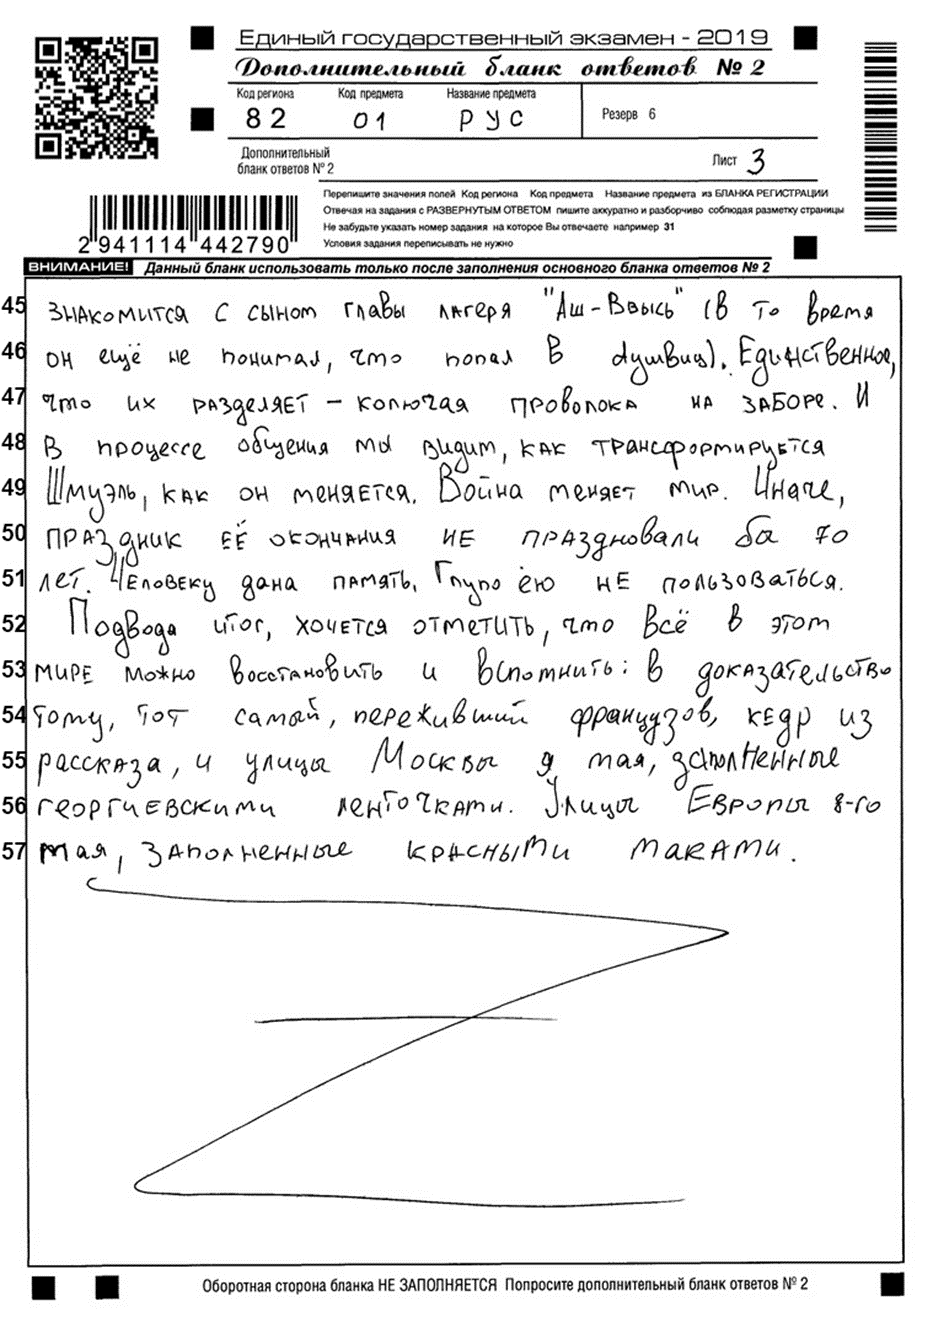 Единый государственный экзамен - 2019
Дополнительный бланк ответов № 2
Код региона Код предмета Название предмета
82 01 РУС
Резерв 6
Дополнительный
бланк ответов № 2
Лист 3
Перепишите значения полей Код региона Код предмета Название предмета из БЛАНКА РЕГИСТРАЦИИ
Отвечая на задания с РАЗВЕРНУТЫМ ОТВЕТОМ пишите аккуратно и разборчиво соблюдая разметку страницы
Не забудьте указать номер задания на которое Вы отвечаете например 31
Условия задания переписывать не нужно
2 941114 442790
ВНИМАНИЕ! Данный бланк использовать только после заполнения основного бланка ответов № 2
45 знакомится с сыном главы лагеря "Аш-Ввысь" (в то время
46 он ещё не понимал, что попал в Аушвиц). Единственное,
47 что их разделяет - колючая проволока на заборе. И
48 в процессе общения мы видим, как трансформируется
49 Шмуэль, как он меняется. Война меняет мир. Иначе,
50 праздник её окончания не праздновали ба 70
51 лет. Человеку дана память. Глупо ею не пользоваться.
52 Подвода итог, хочется отметить, что всё в этом
53 мире можно восстановить и вспомнить: в доказательство
54 тому, тот самый, переживший французов, кедр из
55 рассказа, и улицы Москвы 9 мая, заполненные
56 георгиевскими ленточками. Улицы Европы 8-го
57 мая, заполненные красными маками.
Оборотная сторона бланка НЕ ЗАПОЛНЯЕТСЯ Попросите дополнительный бланк ответов № 2